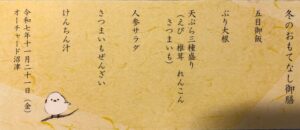 冬のおもてなし御膳
五目御飯
ぶり大根
天ぷら三種盛り
(えび 椎茸 れんこん
さつまいも)
人参サラダ
さつまいもぜんざい
けんちん汁
令和七年十一月二十一日(金)
オーチャード沼津